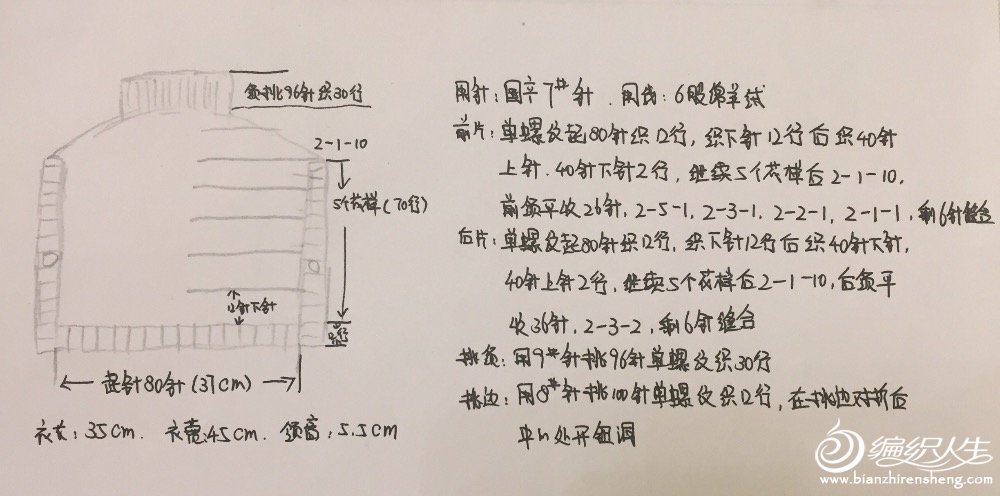 领挑96针织30行
2-1-10
5个花样(70行)
12针下针
12行
起针80针(37cm)
衣长:35cm. 衣宽:45cm. 领高:5.5cm
用针:国产7#针. 用线:6股绵羊绒
前片:单螺纹起80针织12行,织下针12行后织40针
上针.40针下针2行,继续5个花样后2-1-10,
前领平收26针,2-5-1,2-3-1,2-2-1,2-1-1,剩6针缝合
后片:单螺纹起80针织12行,织下针12行后织40针下针,
40针上针2行,继续5个花样后2-1-10,后领平
收36针,2-3-2,剩6针缝合
挑领:用9#针挑96针单螺纹织30行
挑边:用8#针挑100针单螺纹织12行,在挑边对折后
中心处开钮洞
编织人生
www.bianzhirensheng.com